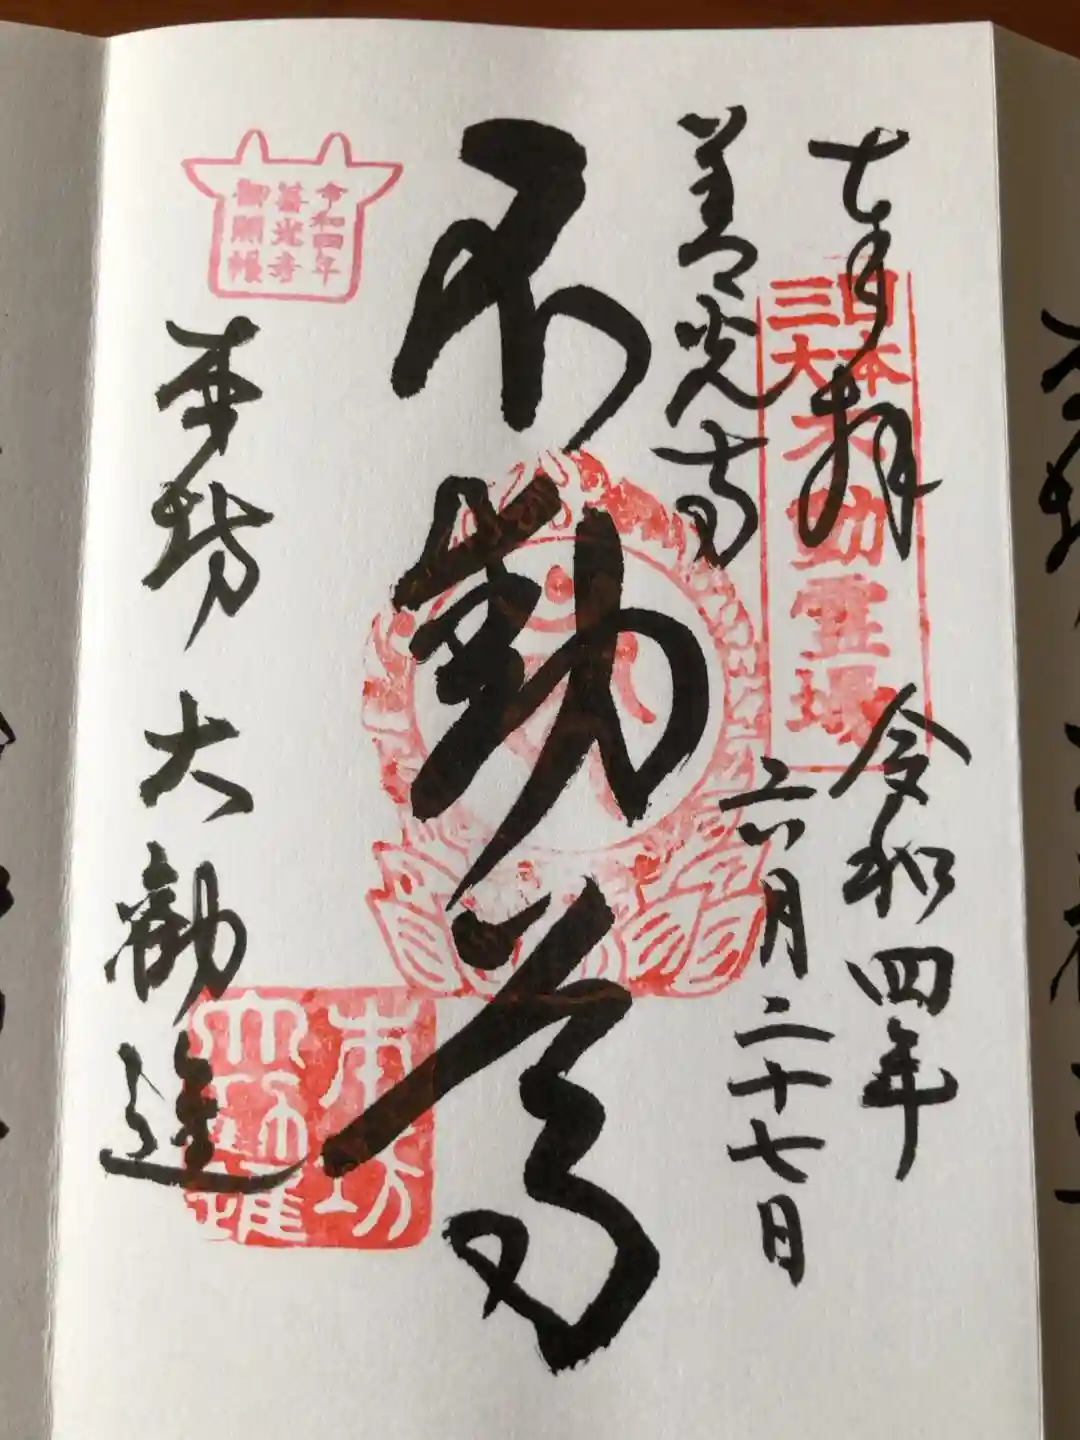 奉拝
令和四年
六月二十七日
日本
三大
不動霊場
善光寺
不動尊
令和四年
善光寺
御開帳
本坊 大勧進
本坊
大勧進